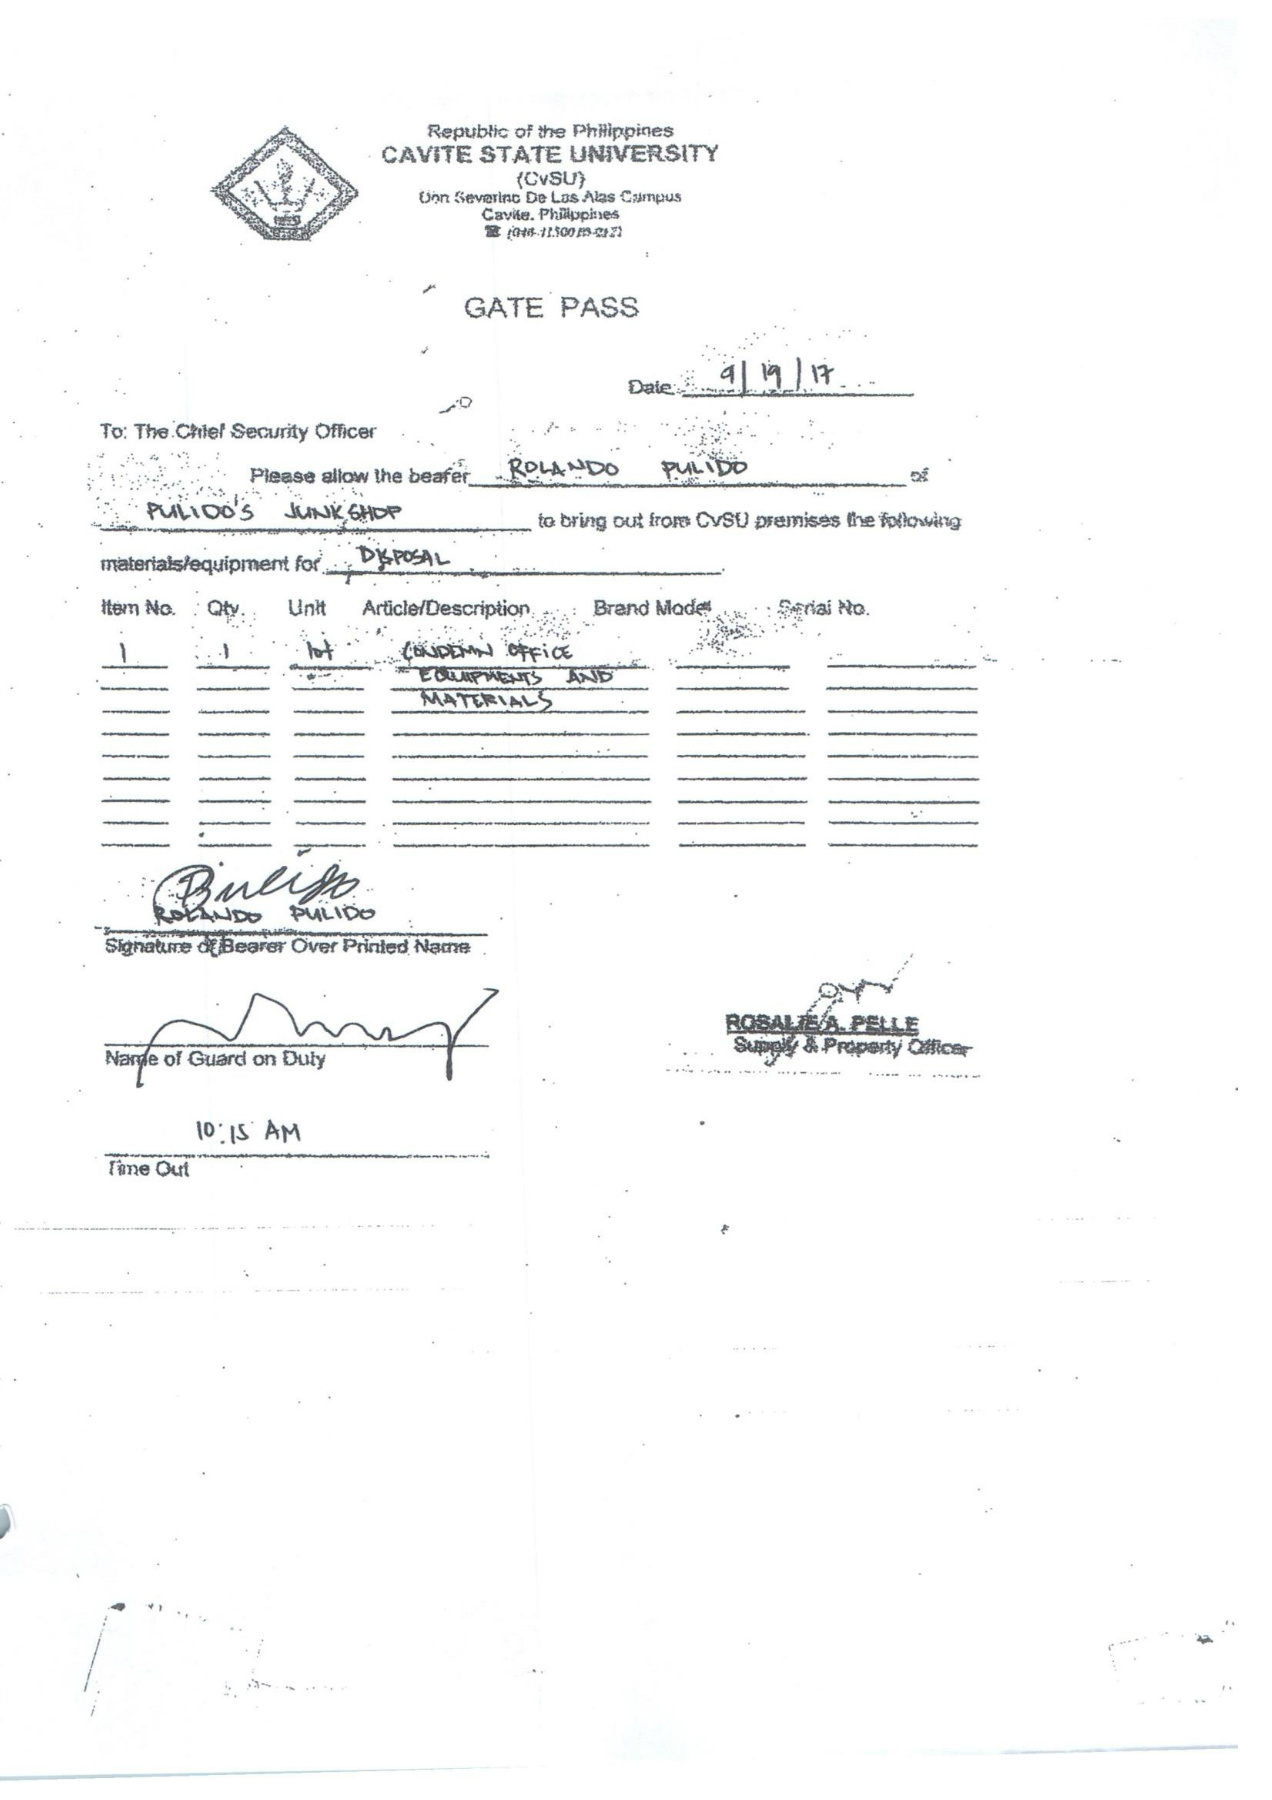 Republic of the Philippines
CAVITE STATE UNIVERSITY
(CvSU)
Don Severino De Las Alas Campus
Cavite, Philippines
GATE PASS
Date 9/19/17
To: The Chief Security Officer
Please allow the bearer ROLANDO PULIDO of
PULIDO'S JUNKSHOP to bring out from CvSU premises the following
materials/equipment for DISPOSAL
Item No. Qty. Unit Article/Description Brand Model Serial No.
1 1 lot CONDEMN OFFICE
EQUIPMENTS AND
MATERIALS
ROLANDO PULIDO
Signature of Bearer Over Printed Name
ROSALIE A. PELLE
Supply & Property Officer
Name of Guard on Duty
10:15 AM
Time Out